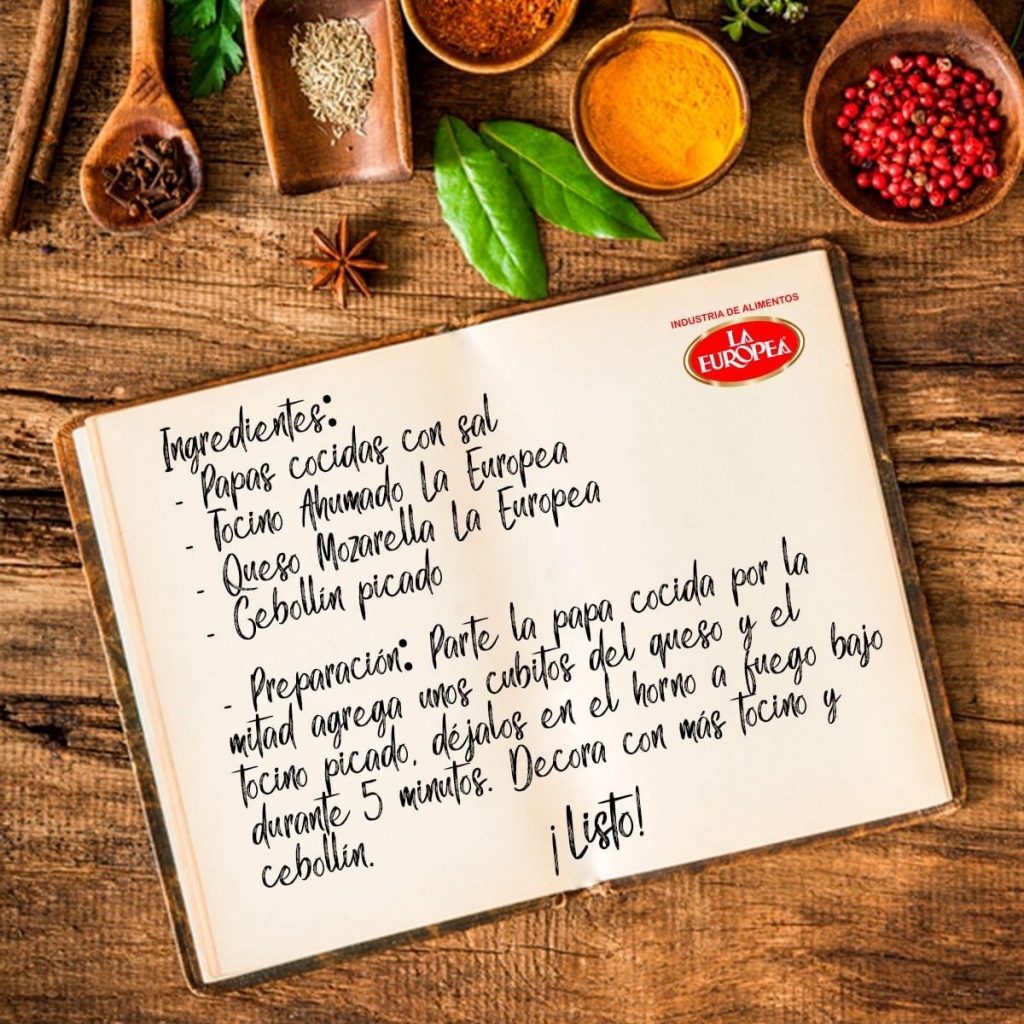 INDUSTRIA DE ALIMENTOS
LA
EUROPEA
Ingredientes:
- Papas cocidas con sal
- Tocino Ahumado La Europea
- Queso Mozarella La Europea
- Cebollín picado
- Preparación: Parte la papa cocida por la
mitad agrega unos cubitos del queso y el
tocino picado, déjalos en el horno a fuego bajo
durante 5 minutos. Decora con más tocino y
cebollín.
¡Listo!